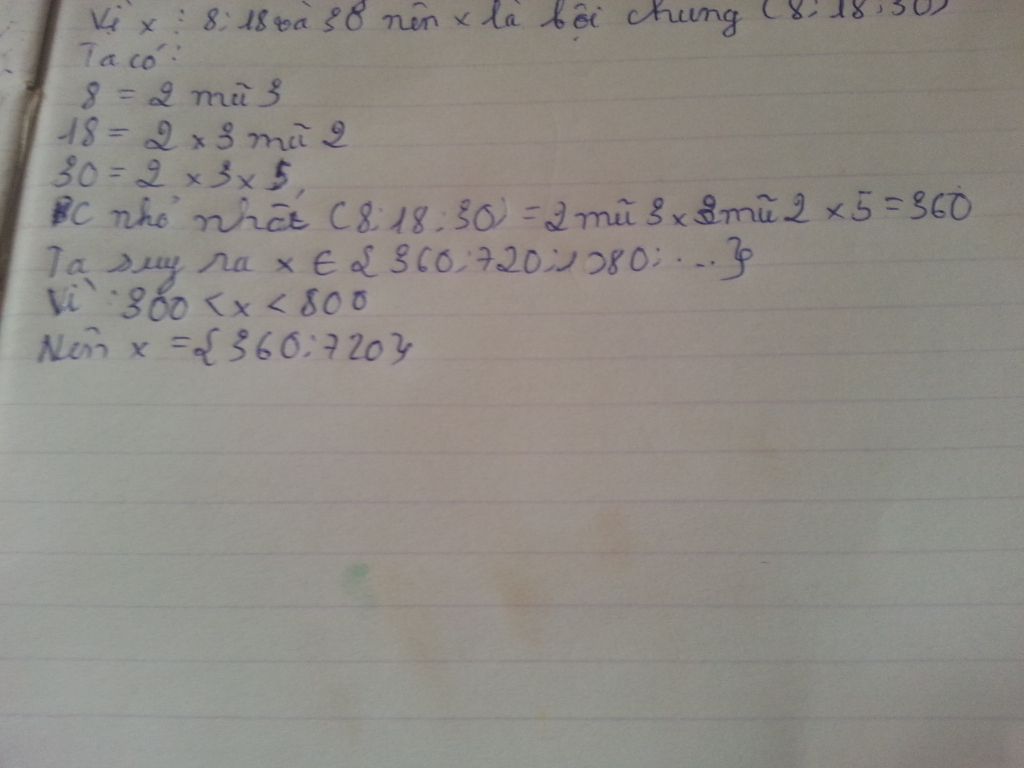 Vì x : 8; 18 và 30 nên x là bội chung (8; 18; 30)
Ta có:
8 = 2 mũ 3
18 = 2 x 3 mũ 2
30 = 2 x 3 x 5,
BC nhỏ nhất (8; 18; 30) = 2 mũ 3 x 3 mũ 2 x 5 = 360
Ta suy ra x ∈ { 360; 720; 1080; ... }
Vì : 300 < x < 800
Nên x = { 360; 720 }